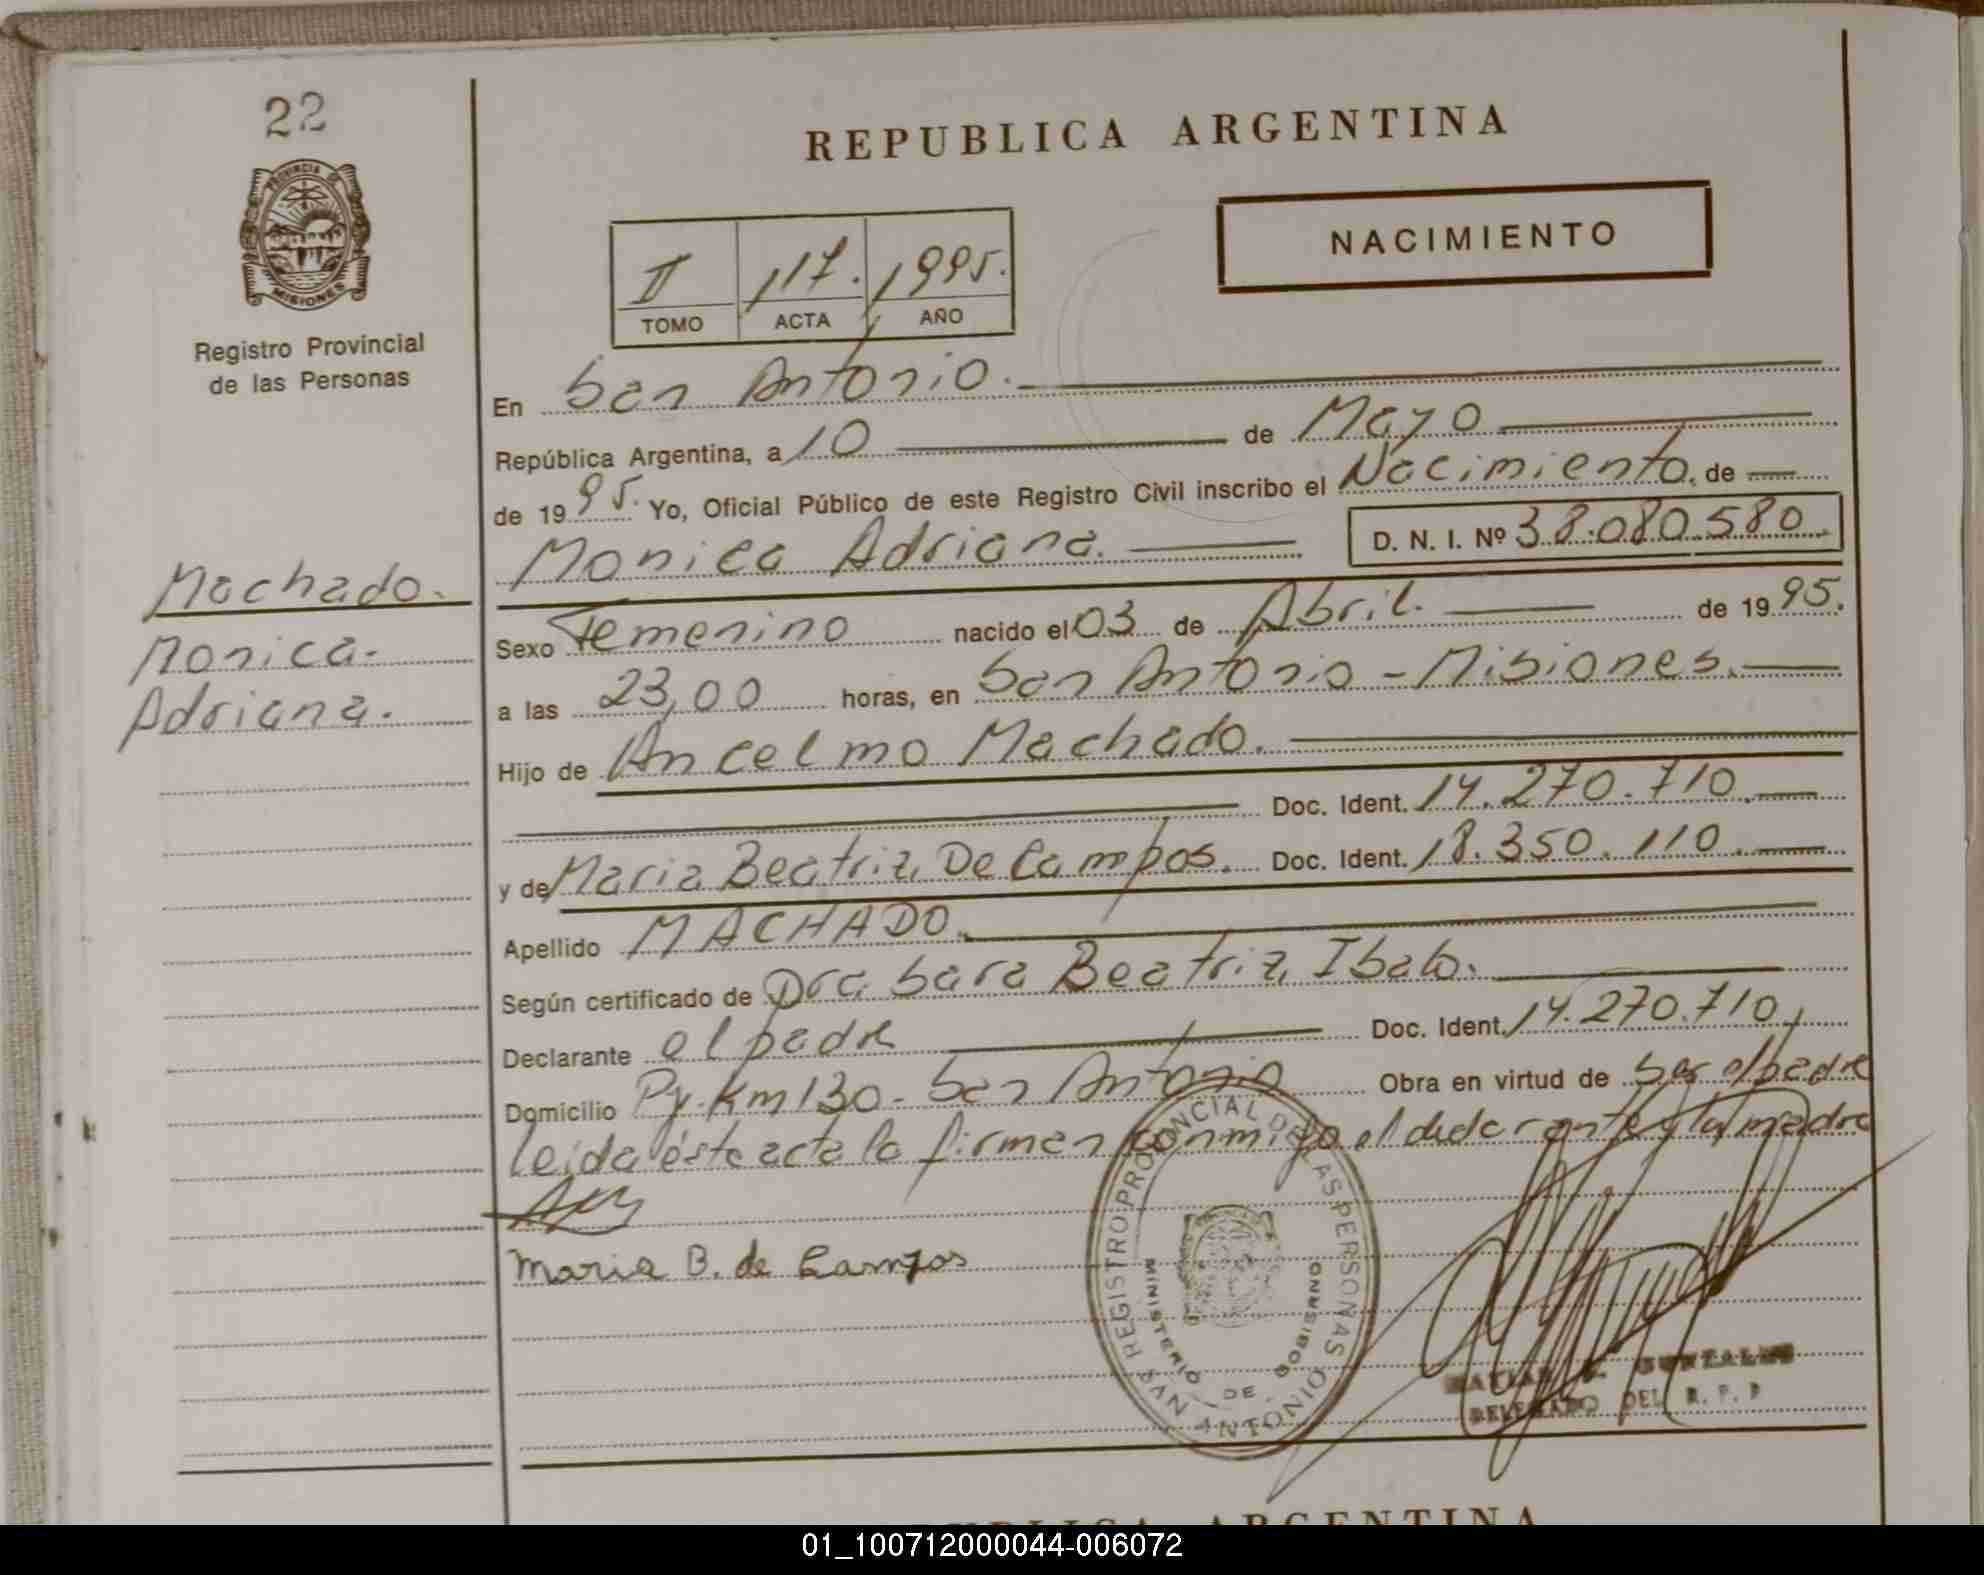 22
PROVINCIA DE
MISIONES
Registro Provincial
de las Personas
REPUBLICA ARGENTINA
NACIMIENTO
II 117. 1995.
TOMO ACTA AÑO
En San Antonio.
República Argentina, a 10 de Mayo
de 1995. Yo, Oficial Público de este Registro Civil inscribo el Nacimiento. de
Monica Adriana. D. N. I. Nº 38.080.580.
Machado.
Monica.
Adriana.
Sexo Femenino nacido el 03 de Abril. de 1995.
a las 23,00 horas, en San Antonio - Misiones.
Hijo de Ancelmo Machado.
Doc. Ident. 14.270.710.
y de Maria Beatriz De Campos. Doc. Ident. 18.350.110.
Apellido MACHADO.
Según certificado de Dra. Sara Beatriz
Declarante el padre Doc. Ident. 14.270.710,
Domicilio Py. Km 130 - San Antonio Obra en virtud de ser el padre
leida éste acta la firman conmigo el declarante y la madre
Maria B. de Campos
REGISTRO PROVINCIAL DE LAS PERSONAS
SAN ANTONIO
MINISTERIO DE GOBIERNO
GONZALES
DELEGADO DEL R. P. P
REPUBLICA ARGENTINA
01_100712000044-006072